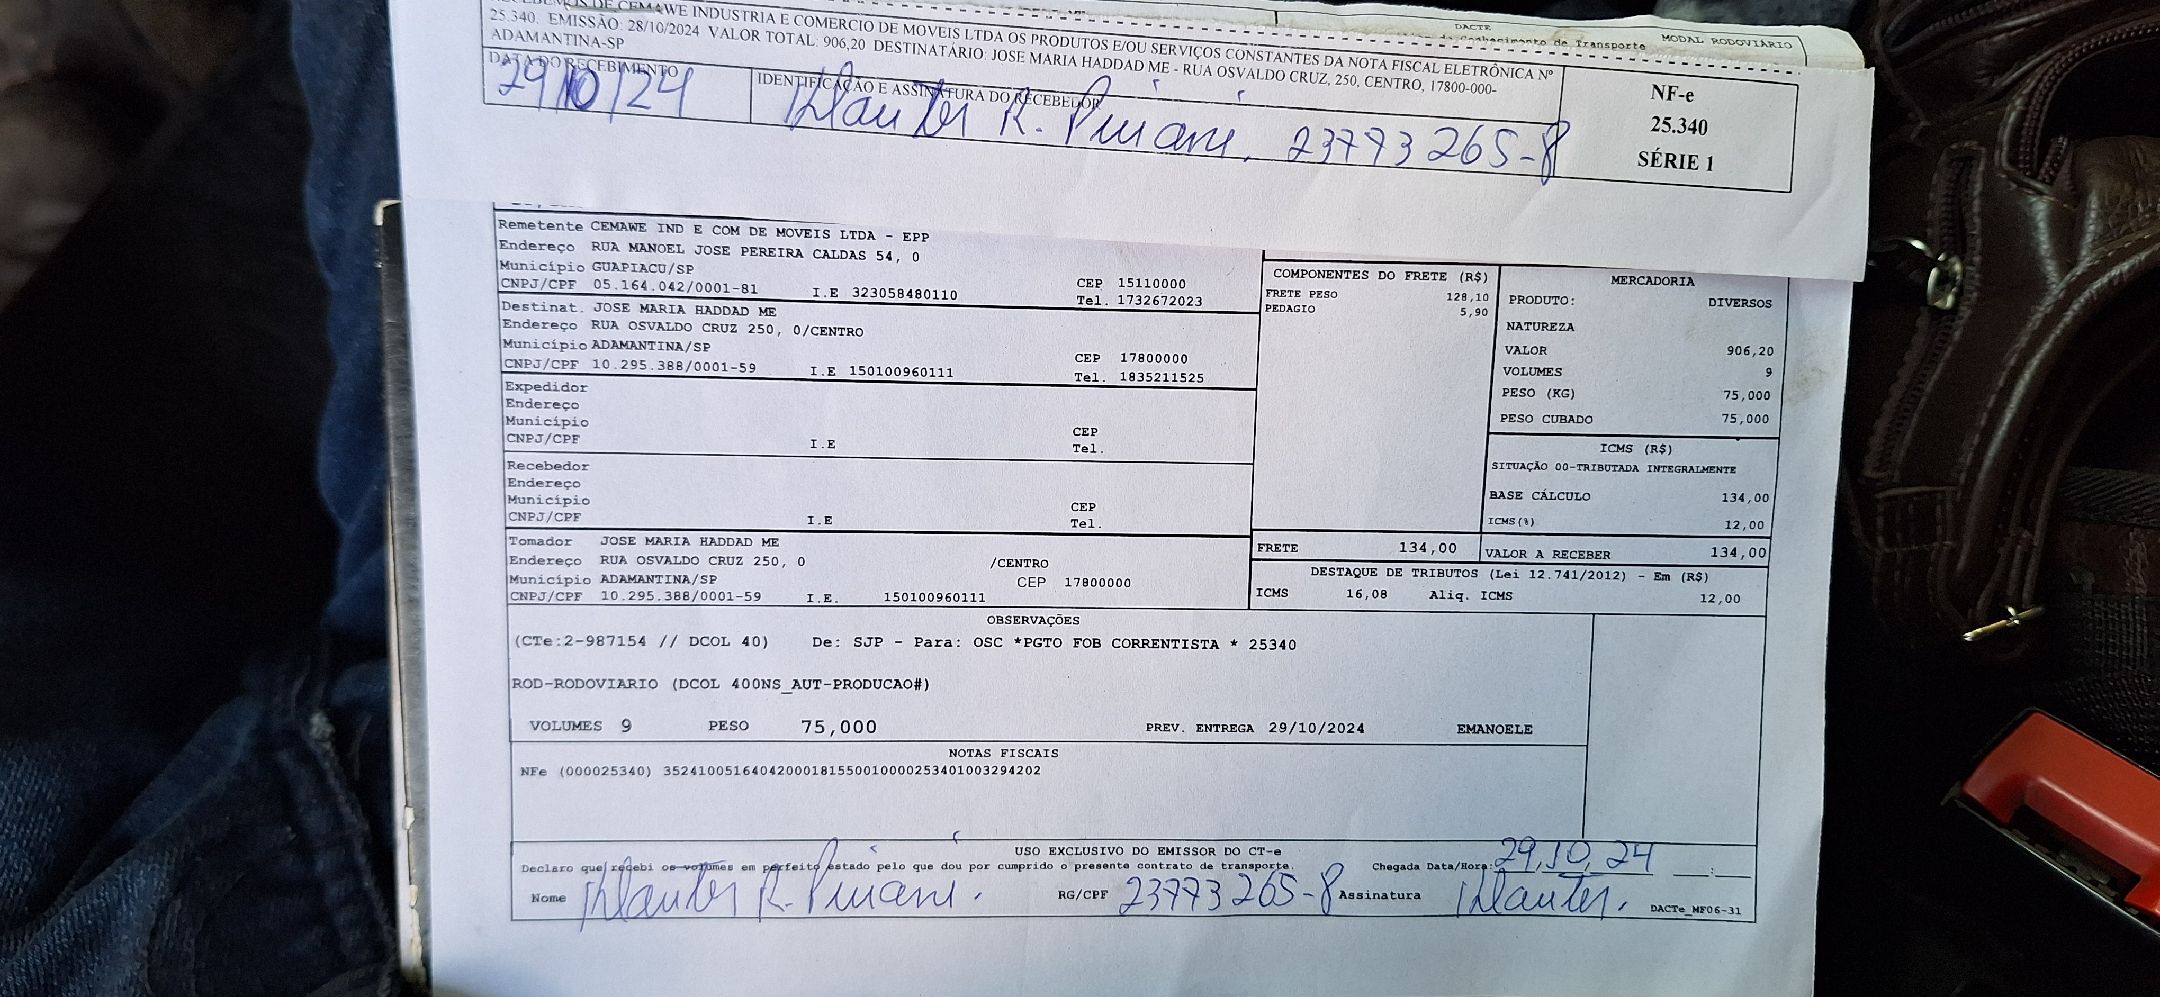 DACTE
de Conhecimento de Transporte
MODAL RODOVIÁRIO
DE CEMAWE INDUSTRIA E COMERCIO DE MOVEIS LTDA OS PRODUTOS E/OU SERVIÇOS CONSTANTES DA NOTA FISCAL ELETRÔNICA Nº
25.340. EMISSÃO: 28/10/2024 VALOR TOTAL: 906,20 DESTINATÁRIO: JOSE MARIA HADDAD ME - RUA OSVALDO CRUZ, 250, CENTRO, 17800-000-
ADAMANTINA-SP
DATA DO RECEBIMENTO
29/10/24
IDENTIFICAÇÃO E ASSINATURA DO RECEBEDOR
R. 23773265-8
NF-e
25.340
SÉRIE 1
Remetente CEMAWE IND E COM DE MOVEIS LTDA - EPP
Endereço RUA MANOEL JOSE PEREIRA CALDAS 54, 0
Município GUAPIACU/SP CEP 15110000
CNPJ/CPF 05.164.042/0001-81 I.E 323058480110 Tel. 1732672023
Destinat. JOSE MARIA HADDAD ME
Endereço RUA OSVALDO CRUZ 250, 0/CENTRO
Município ADAMANTINA/SP CEP 17800000
CNPJ/CPF 10.295.388/0001-59 I.E 150100960111 Tel. 1835211525
Expedidor
Endereço
Município CEP
CNPJ/CPF I.E Tel.
Recebedor
Endereço
Município CEP
CNPJ/CPF I.E Tel.
Tomador JOSE MARIA HADDAD ME
Endereço RUA OSVALDO CRUZ 250, 0 /CENTRO
Município ADAMANTINA/SP CEP 17800000
CNPJ/CPF 10.295.388/0001-59 I.E. 150100960111
COMPONENTES DO FRETE (R$)
FRETE PESO 128,10
PEDAGIO 5,90
FRETE 134,00
MERCADORIA
PRODUTO: DIVERSOS
NATUREZA
VALOR 906,20
VOLUMES 9
PESO (KG) 75,000
PESO CUBADO 75,000
ICMS (R$)
SITUAÇÃO 00-TRIBUTADA INTEGRALMENTE
BASE CÁLCULO 134,00
ICMS(%) 12,00
VALOR A RECEBER 134,00
DESTAQUE DE TRIBUTOS (Lei 12.741/2012) - Em (R$)
ICMS 16,08 Aliq. ICMS 12,00
OBSERVAÇÕES
(CTe:2-987154 // DCOL 40) De: SJP - Para: OSC *PGTO FOB CORRENTISTA * 25340
ROD-RODOVIARIO (DCOL 400NS_AUT-PRODUCAO#)
VOLUMES 9 PESO 75,000 PREV. ENTREGA 29/10/2024 EMANOELE
NOTAS FISCAIS
NFe (000025340) 35241005164042000181550010000253401003294202
USO EXCLUSIVO DO EMISSOR DO CT-e
Declaro que recebi os volumes em perfeito estado pelo que dou por cumprido o presente contrato de transporte. Chegada Data/Hora: 29,10,24 __:__
Nome R. RG/CPF 23773265-8 Assinatura
DACTe_MF06-31